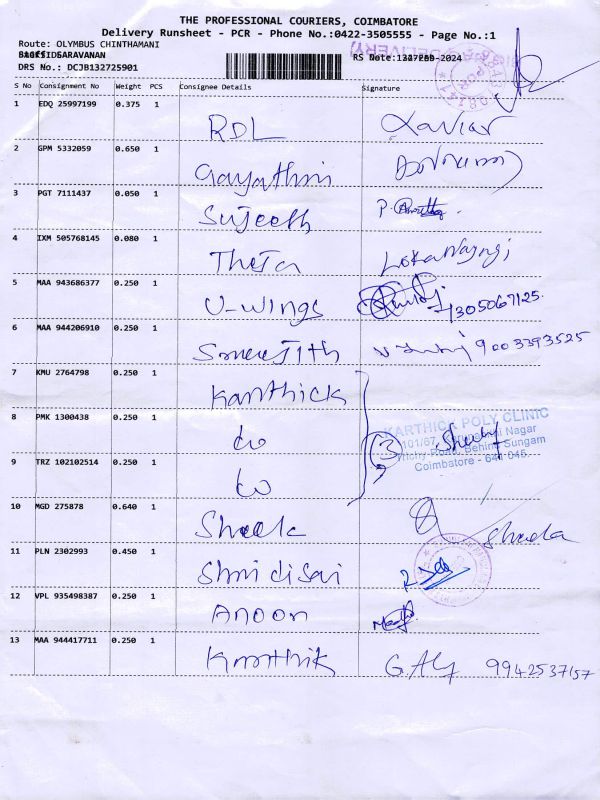 THE PROFESSIONAL COURIERS, COIMBATORE
Delivery Runsheet - PCR - Phone No.:0422-3505555 - Page No.:1
Route: OLYMBUS CHINTHAMANI
SARAVANAN
DRS No.: DCJB132725901
S No Consignment No Weight PCS Consignee Details Signature
1 EDQ 25997199 0.375 1 RDL Xavier
2 GPM 5332059 0.650 1 Gayathri
3 PGT 7111437 0.050 1 Sujeeth P.
4 IXM 505768145 0.080 1 Theja
5 MAA 943686377 0.250 1 U-wings 7305067125
6 MAA 944206910 0.250 1 9003393525
7 KMU 2764798 0.250 1 Karthick
8 PMK 1300438 0.250 1 do 3
KARTHICK POLY CLINIC
Nagar
Trichy Road, Behind Sungam
Coimbatore - 641 045.
9 TRZ 102102514 0.250 1 do
10 MGD 275878 0.640 1 Sheela Sheela
11 PLN 2302993 0.450 1 Shri di Sai
12 VPL 935498387 0.250 1 Anoon
13 MAA 944417711 0.250 1 Karthik 9942537157